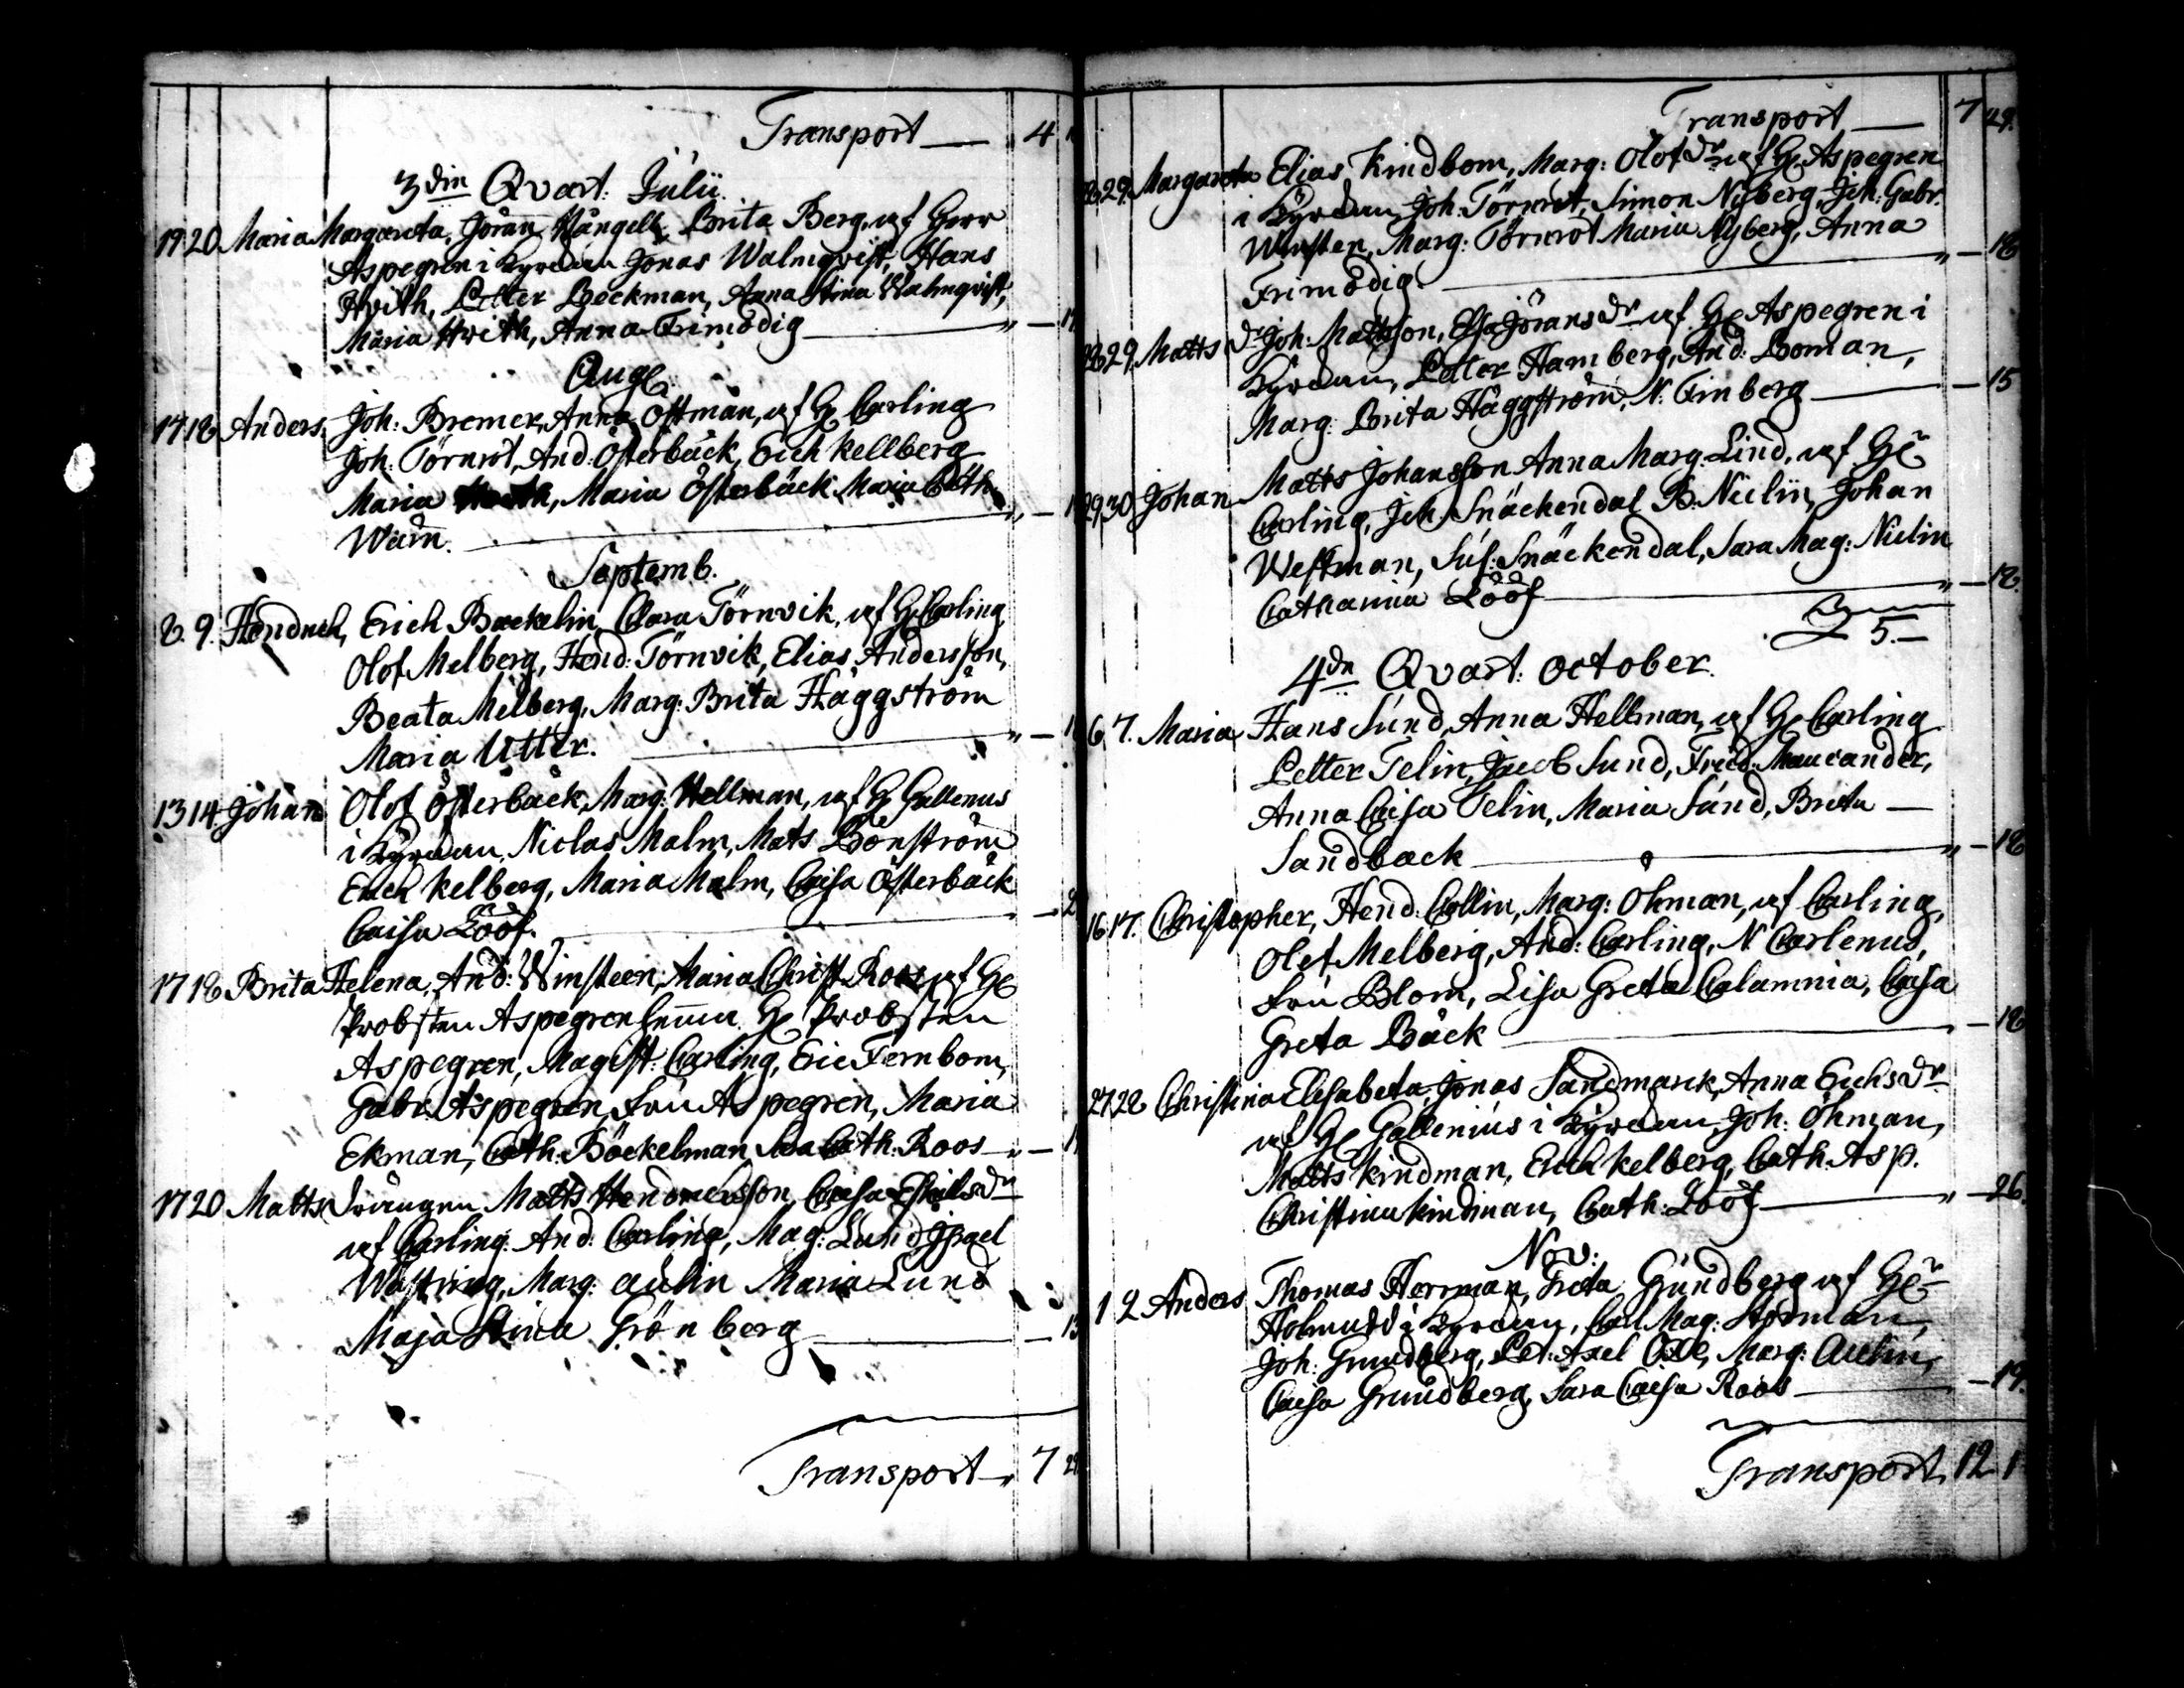 Transport 4
3din Qvart: Julii.
19 20 Maria Margareta, Jöran Brita Berg, af Herr
Aspegren i Kyrckan Jonas Walmqvist, Hans
Hvith, Petter Beckman, Anna Stina Walmqvist,
Maria Hvith, Anna Frimodig
Aug:
17 18 Anders, Joh: Bremer, Anna Ostman, af H: Carling
Joh: Törnrot, And: Österback, Erich Kellberg
Maria Maria Österback Maria Cath:
Septemb.
8. 9. Hendrich, Erich Backelin, Clara Törnvik, af H: Carling,
Olof Melberg, Hend: Törnvik, Elias Andersson,
Beata Melberg, Marg: Brita Häggström
Maria Utter.
13 14 Johan Olof Österback, Marg: Hellman, af H: Gallenus
i Kyrckan, Niclas Malm, Mats Bonström
Erich Kelberg, Maria Malm, Caisa Österback
Caisa Lööf.
17 18 Brita Helena, And: Winsteen, Maria Christ: Roos af H:
Probsten Aspegren hemma. H: Probsten
Aspegren, Magist: Carling, Eric Fernbom,
Gabr: Aspegren, Fru Aspegren, Maria
Ekman, Cath: Böckelman, Sara Cath: Roos
17 20 Matts, Drängen Matts Hendricksson, Caisa
af Carling. And: Carling, Mag: Lund Israel
Wästring, Marg: Aulin Maria Lund
Maja Stina Grönberg
Transport 7
Transport 7 29.
28 29. Margareta Elias Kindbom, Marg: Olofdr af H: Aspegren
i Kyrckan, Joh: Törnrot, Simon Nyberg, Joh: Gabr:
Winsten, Marg: Törnrot Maria Nyberg, Anna
Frimodig. 18
28 29. Matts, Joh: Mattsson, Elsa Jöransdr af H: Aspegren i
Kyrckan, Petter Hamberg, And: Boman,
Marg: Brita Häggström, N: Finberg 15
29 30 Johan Matts Johansson, Anna Marg: Lind, af Hr
Carling, Joh: Snäckendal B: Niclin, Johan
Westman, Sus: Snäckendal, Sara Mag: Niclin
Catharina Lööf 18.
5.
4de Qvart: October.
6 7. Maria Hans Sund, Anna Hellman, af H: Carling
Petter Telin, Jacob Sund, Fried: Maucander,
Anna Caisa Telin, Maria Sund, Brita
Sandback 18
16 17. Christopher, Hend: Collin, Marg: Ohman, af Carling,
Olof Melberg, And: Carling, N Carlenus,
Fru Blom, Lisa Greta Calamnia, Caisa
Greta Bäck 18
27 28 Christina Elisabeta, Jonas Sandmark, Anna Erichsdr
af H: Gallenius i Kyrckan, Joh: Öhman,
Matts Kindman, Erich Kelberg, Cath: Asp.
Christina Kindman, Cath: Lööf 26
Nov:
1 2 Anders Thomas Herrman, Greta Grundberg af Hr
i Kyrckan, Carl Mag:
Joh: Grundberg, Pet: Axel Marg: Aulin,
Caisa Grundberg, Sara Caisa Roos 19.
Transport 12 1